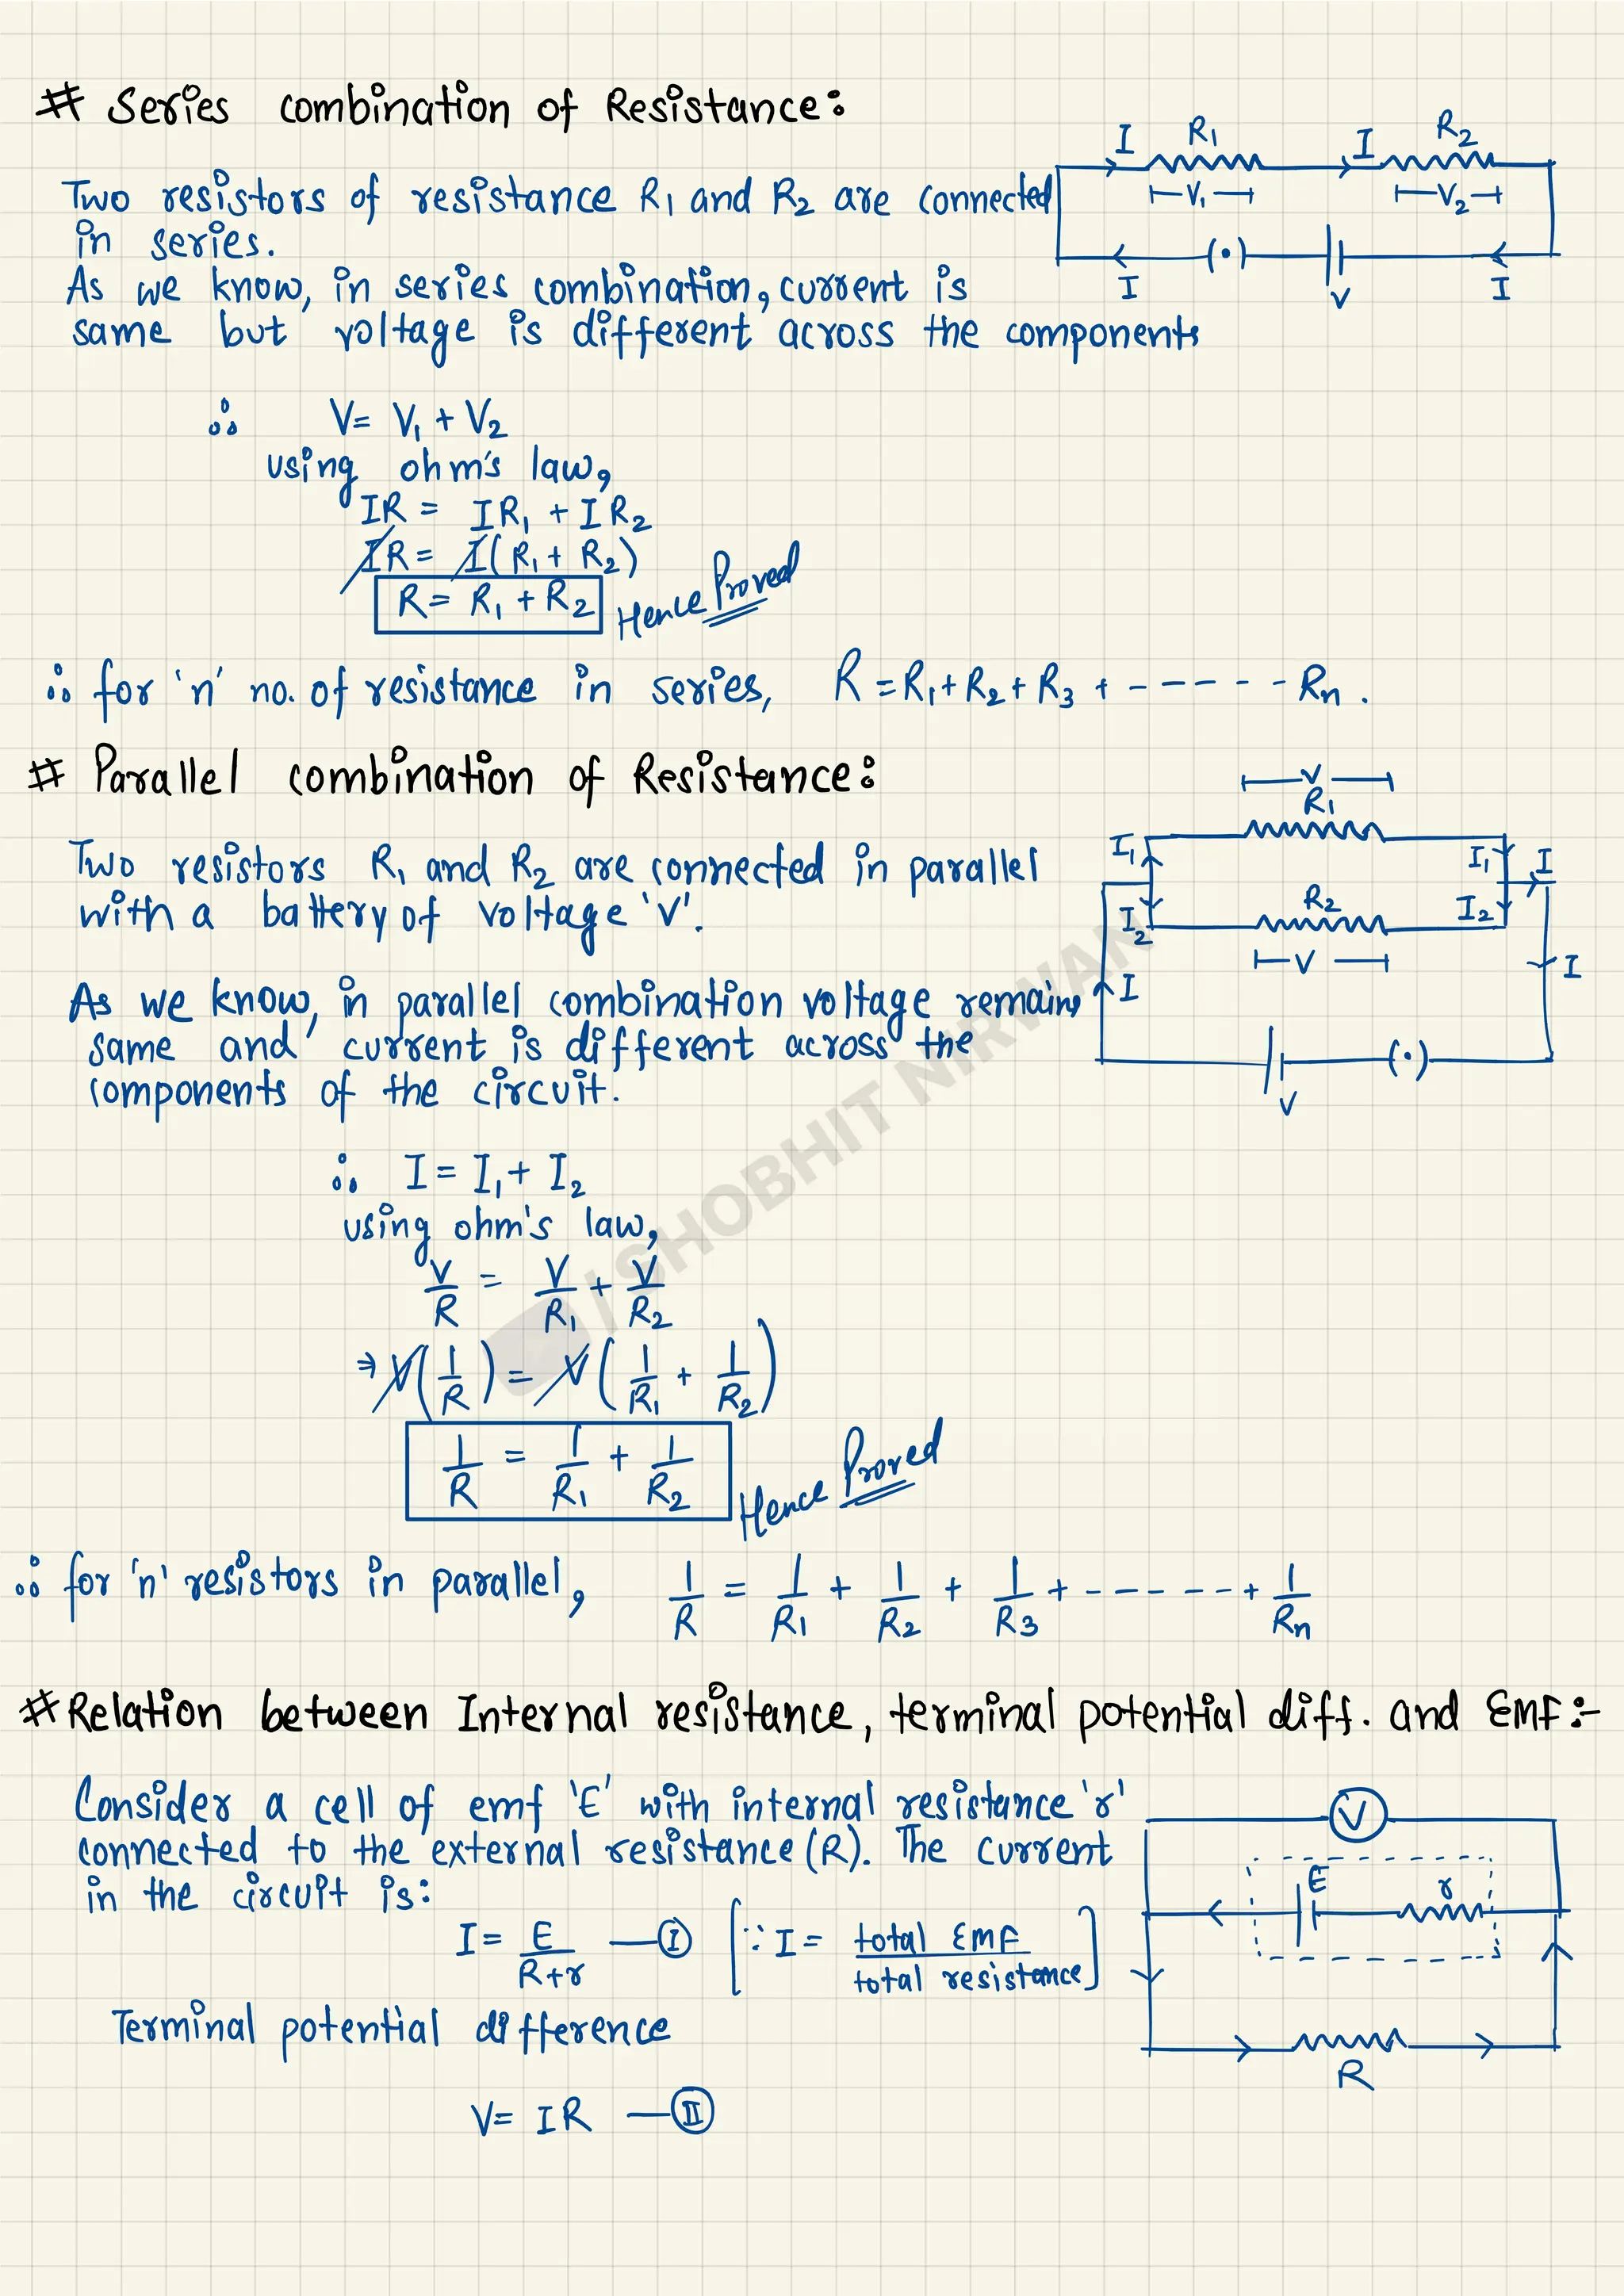 # Series combination of Resistance:
I R1 I R2
Two resistors of resistance R1 and R2 are connected
V1 V2
in series.
I V I
As we know, in series combination, current is
same but voltage is different across the components
∴ V = V1 + V2
using ohm's law,
IR = IR1 + IR2
IR = I(R1 + R2)
R = R1 + R2 Hence Proved
∴ for 'n' no. of resistance in series, R = R1 + R2 + R3 + ------ Rn.
# Parallel combination of Resistance:
V
R1
I1 I1 I
Two resistors R1 and R2 are connected in parallel
R2
with a battery of voltage 'V'.
I2 I2
V
I I
As we know, in parallel combination voltage remains
same and current is different across the
components of the circuit.
V
∴ I = I1 + I2
using ohm's law,
V/R = V/R1 + V/R2
⇒ V(1/R) = V(1/R1 + 1/R2)
1/R = 1/R1 + 1/R2 Hence Proved
∴ for 'n' resistors in parallel, 1/R = 1/R1 + 1/R2 + 1/R3 + ------ + 1/Rn
# Relation between Internal resistance, terminal potential diff. and EMF:-
Consider a cell of emf 'E' with internal resistance 'r'
V
connected to the external resistance (R). The current
E r
in the circuit is:
I = E/(R+r) — (I) [∵ I = total EMF/total resistance]
Terminal potential difference
R
V = IR — (II)
SHOBHIT NIRWAN